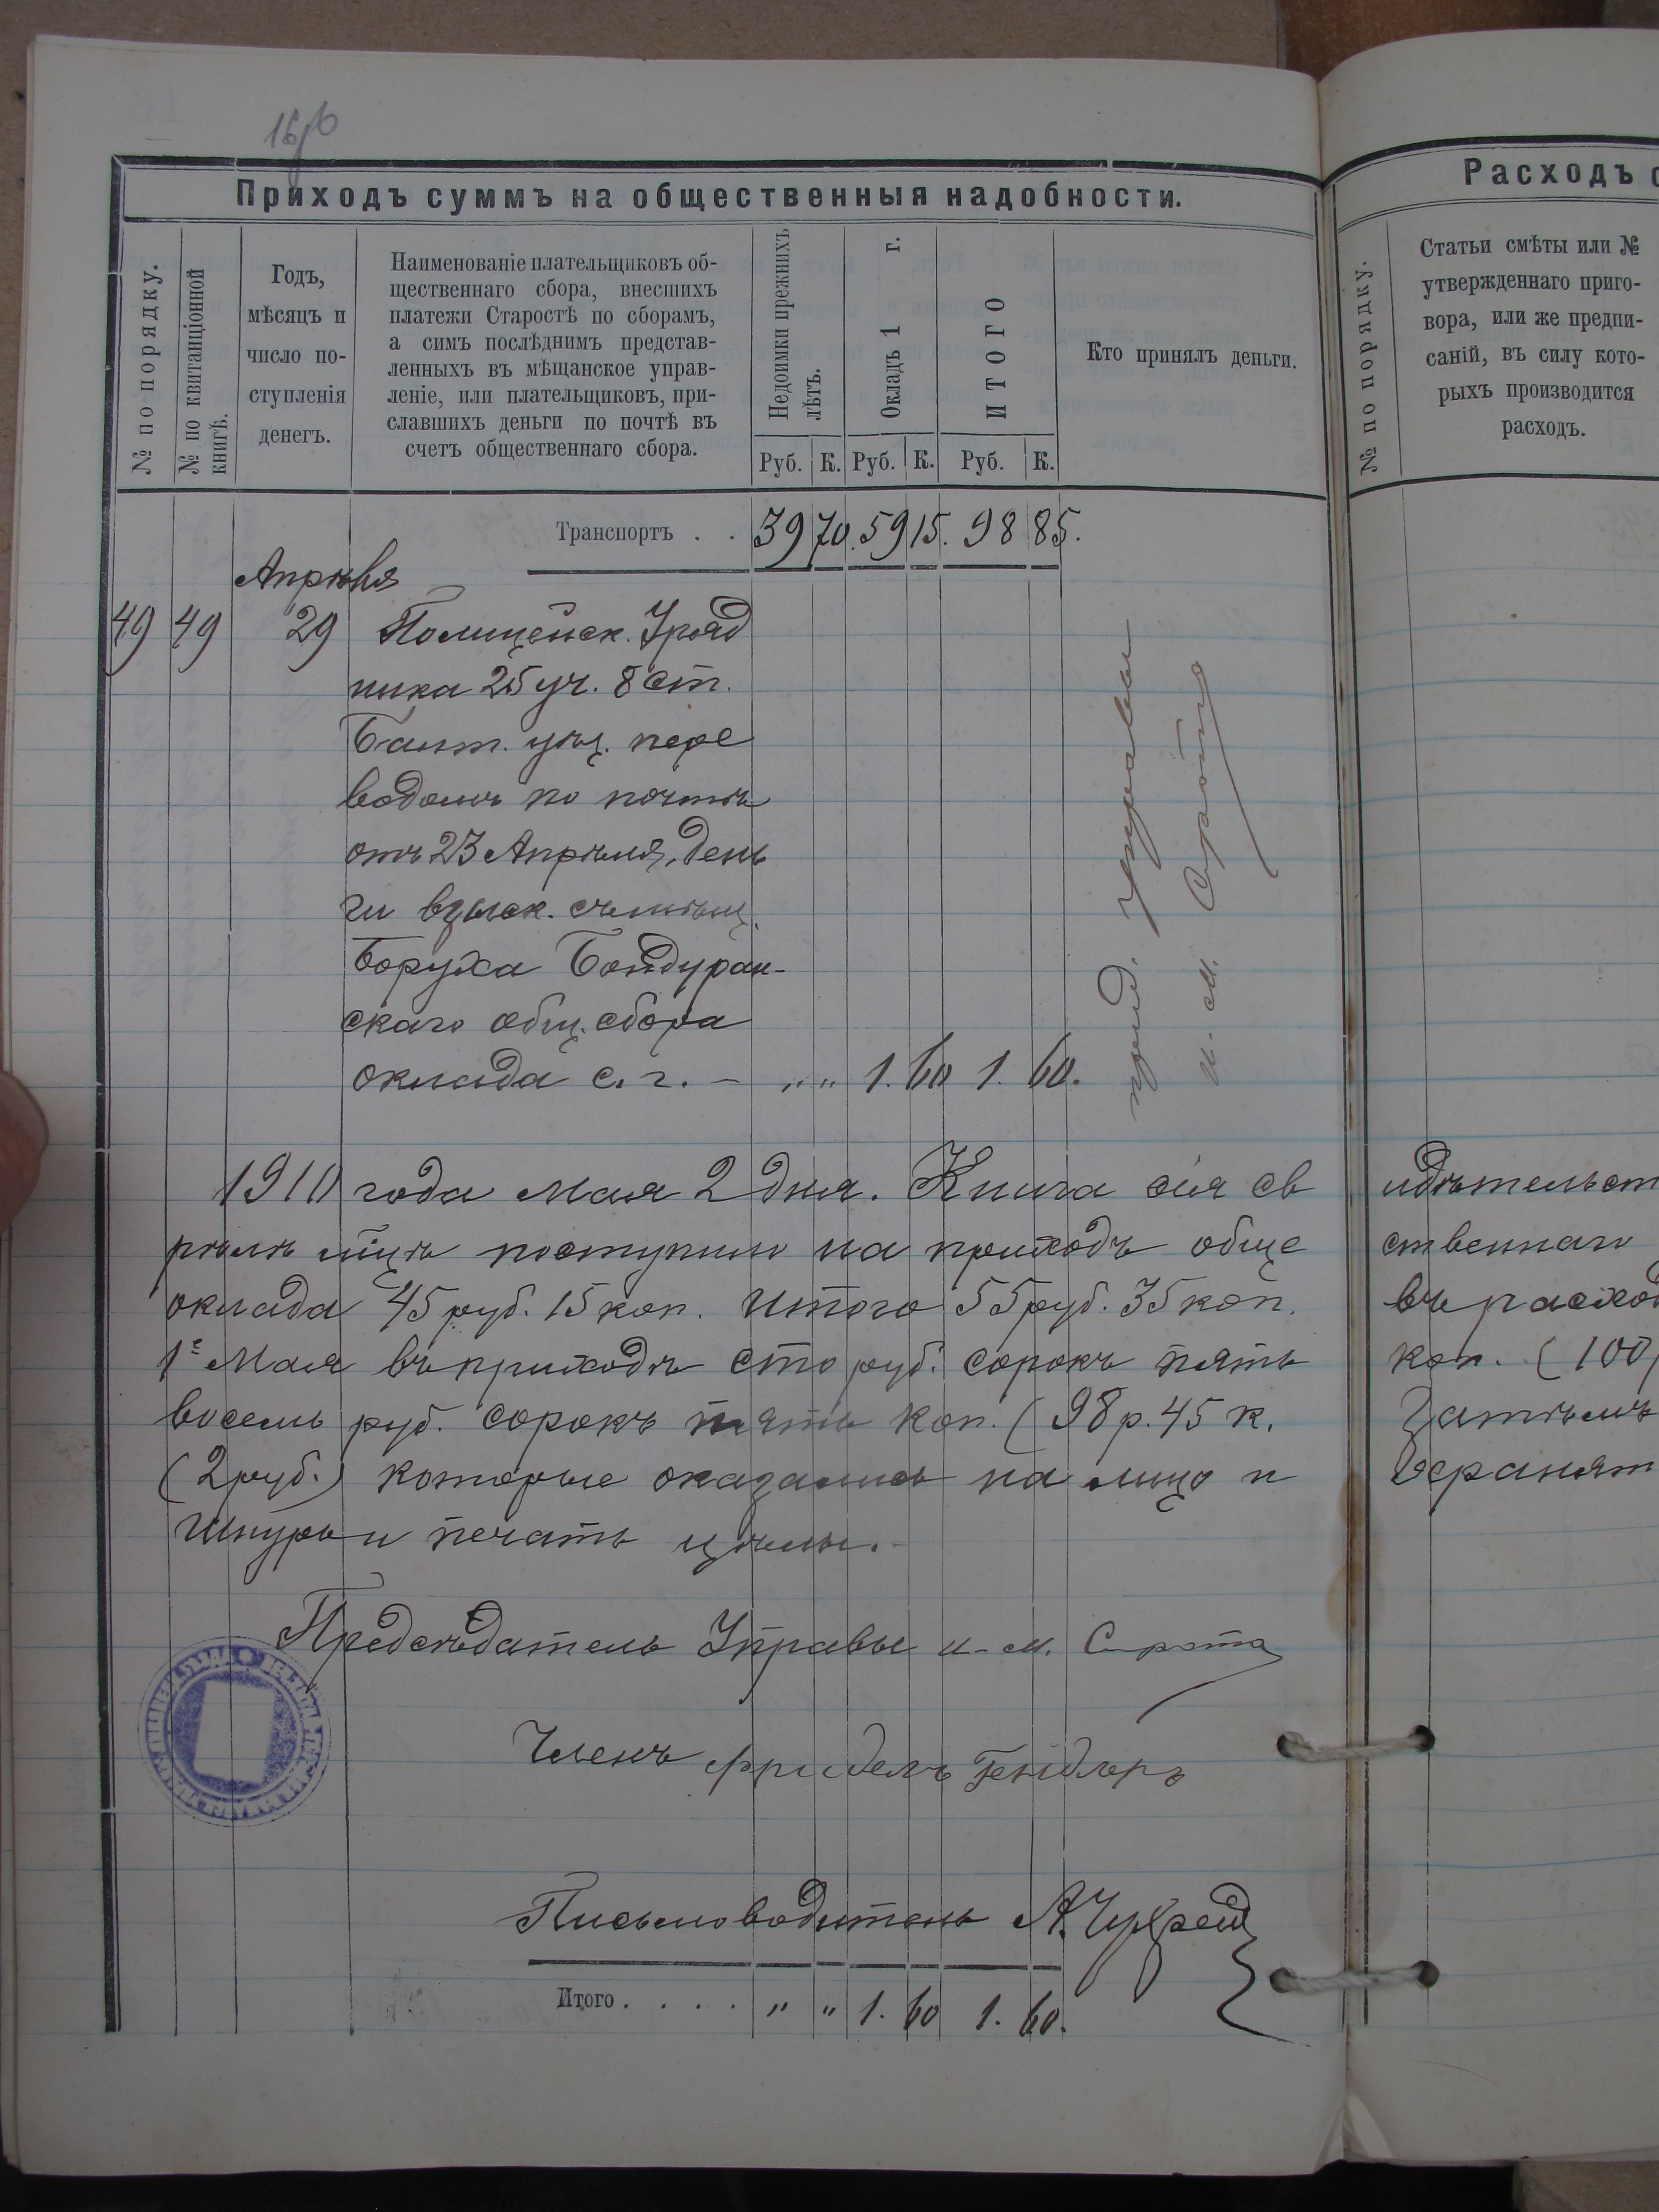 Приходъ суммъ на общественныя надобности.
№ по порядку.
№ по квитанціонной книгѣ.
Годъ,
мѣсяцъ и
число по-
ступленія
денегъ.
Наименованіе плательщиковъ об-
щественнаго сбора, внесшихъ
платежи Старостѣ по сборамъ,
а симъ послѣднимъ представ-
ленныхъ въ мѣщанское управ-
леніе, или плательщиковъ, при-
славшихъ деньги по почтѣ въ
счетъ общественнаго сбора.
Недоимки прежнихъ
лѣтъ.
Окладъ 1 г.
ИТОГО
Руб. К. Руб. К. Руб. К.
Кто принялъ деньги.
Транспортъ . . 39 70. 59 15. 98 85.
Апрѣля
49 49 29 Полицейск. Уряд
ника 25 уч. 8 ст.
уѣз. пере
водомъ по почтѣ
отъ 23 Апрѣля, день
ги взыск. съ мѣщ.
Боруха Бондуран-
скаго общ. сбора
оклада с. г. – „ „ 1. 60 1. 60.
пред. Управы
и. м. Сирота
1910 года Мая 2 дня. Книга сія св
рѣлѣ мцѣ поступило на приходъ обще
оклада 45 руб. 15 коп. Итого 55 руб. 35 коп.
1е Мая въ приходѣ сто руб. сорокъ пять
восемь руб. сорокъ пять коп. (98 р. 45 к.
(2 руб.) которые оказались на лицо и
Шнуръ и печать цѣлы.
Предсѣдатель Управы и. м. Сирота
Членъ Фридель Гендлеръ
Письмоводитель А.
Итого . . . . „ „ 1. 60 1. 60.
Расходъ с
№ по порядку.
Статьи смѣты или №
утвержденнаго приго-
вора, или же предпи-
саній, въ силу кото-
рыхъ производится
расходъ.
идѣтельст
ственнаго
въ расход
коп. (100
Затѣмъ